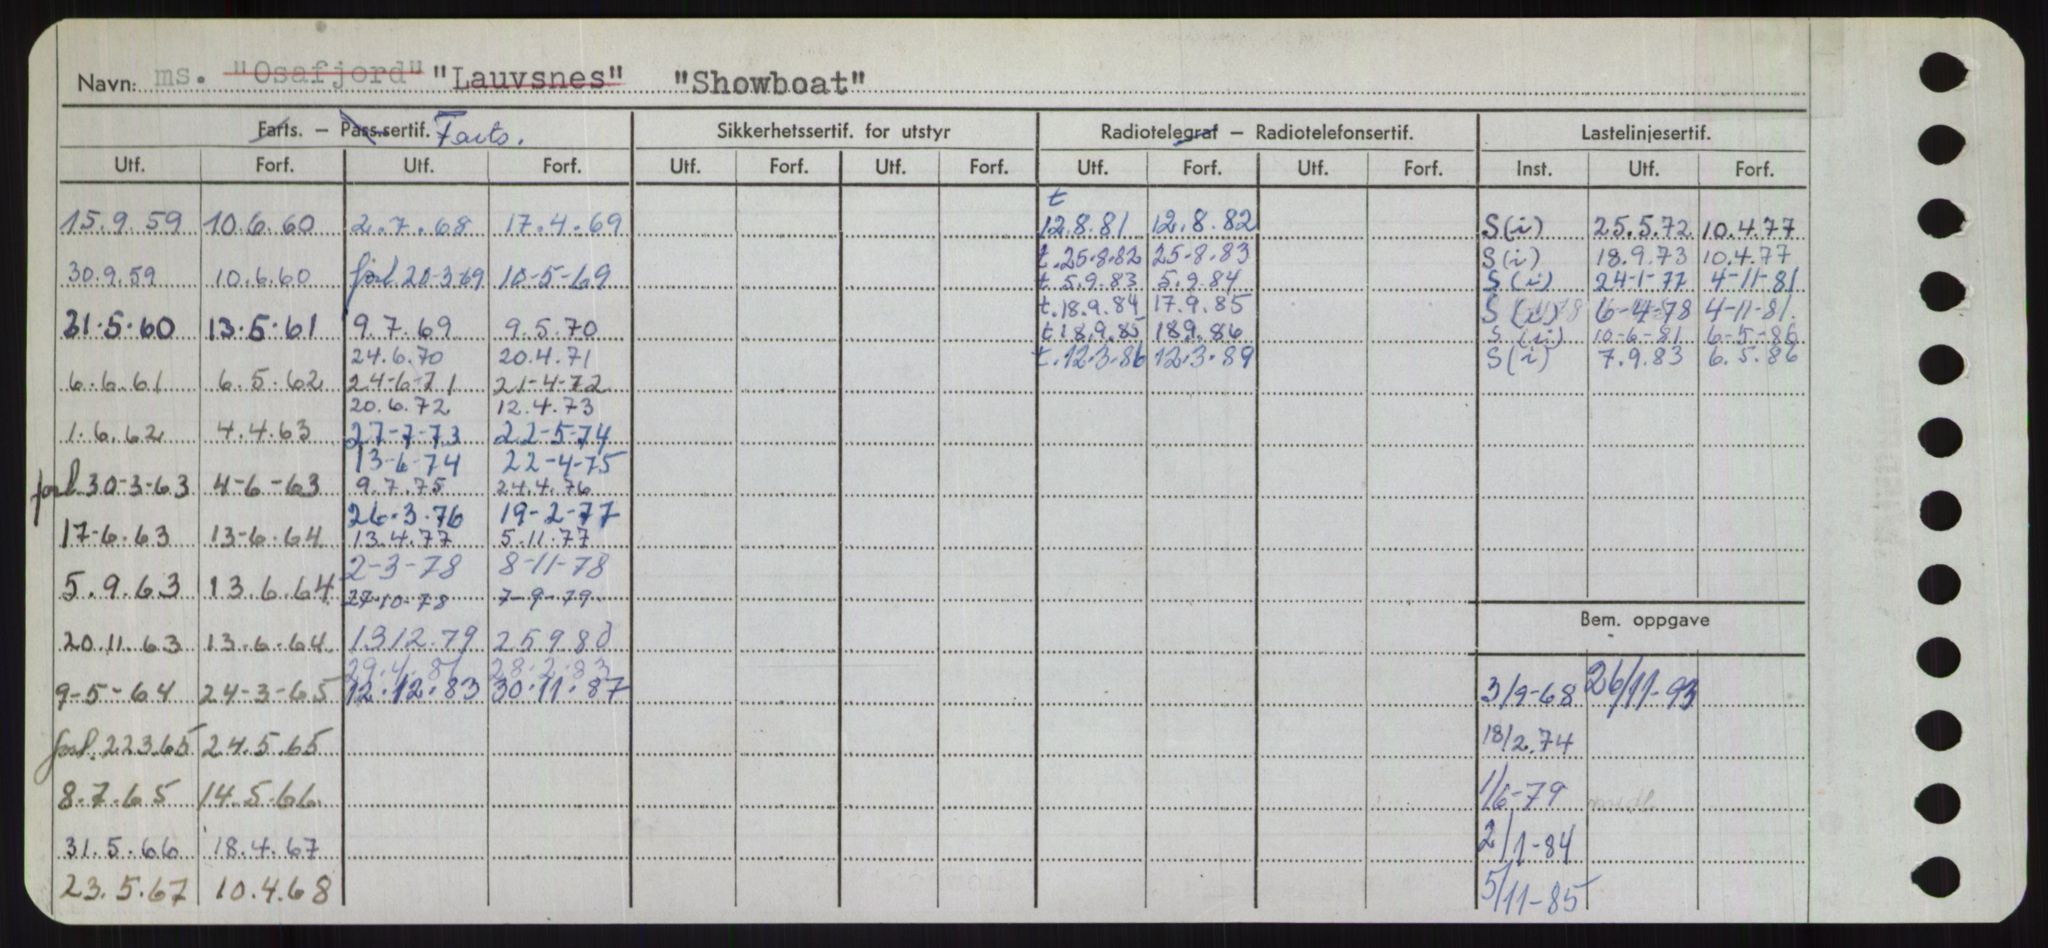 Navn: ms. "Osafjord" "Lauvsnes" "Showboat"
Farts. – Pass.sertif. Farts. Sikkerhetssertif. for utstyr Radiotelegraf – Radiotelefonsertif. Lastelinjesertif.
Utf. Forf. Utf. Forf. Utf. Forf. Utf. Forf. Utf. Forf. Utf. Forf. Inst. Utf. Forf.
t
15.9.59 10.6.60 2.7.68 17.4.69 12.8.81 12.8.82 S(i) 25.5.72 10.4.77
t.25.8.82 25.8.83 S(i) 18.9.73 10.4.77
30.9.59 10.6.60 forl 20-3-69 10-5-69 t 5.9.83 5.9.84 S(i) 24-1-77 4-11-81
t.18.9.84 17.9.85 S(i) 6-4-78 4-11-81.
31.5.60 13.5.61 9.7.69 9.5.70 t.18.9.85 18.9.86 S(i) 10-6-81 6-5-86
24.6.70 20.4.71 t.12.3.86 12.3.89 S(i) 7.9.83 6.5.86
6.6.61 6.5.62 24-6-71 21-4-72
20.6.72 12.4.73
1.6.62 4.4.63 27-7-73 22-5-74
13-6-74 22-4-75
forl 30-3-63 4-6-63 9.7.75 24.4.76
26.3.76 19-2-77
17-6.63 13-6.64 13.4.77 5.11.77
2-3-78 8-11-78
5.9.63 13.6.64 27-10-78 7-9-79
Bem. oppgave
20.11.63 13.6.64 1312.79 25980
29.4.81 28.2.83
9-5-64 24-3-65 12.12.83 30.11.87 3/9-68 26/11-93
forl. 22365 24.5.65 18/2.74
8.7.65 14.5.66 1/6-79
31.5.66 18.4.67 2/1-84
23.5.67 10.4.68 5/11-85